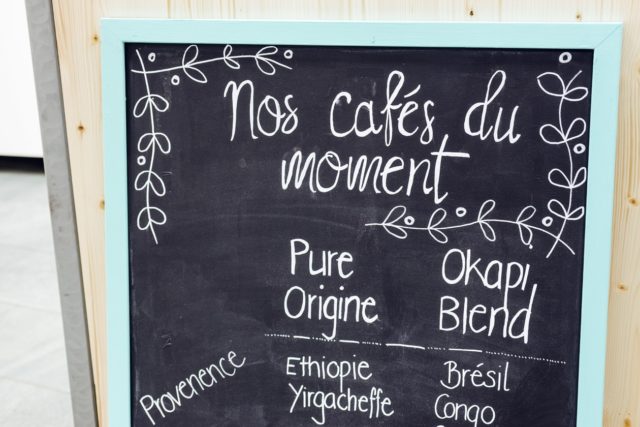 Nos cafés du
moment
Pure
Origine
Okapi
Blend
Provenence
Ethiopie
Yirgacheffe
Brésil
Congo